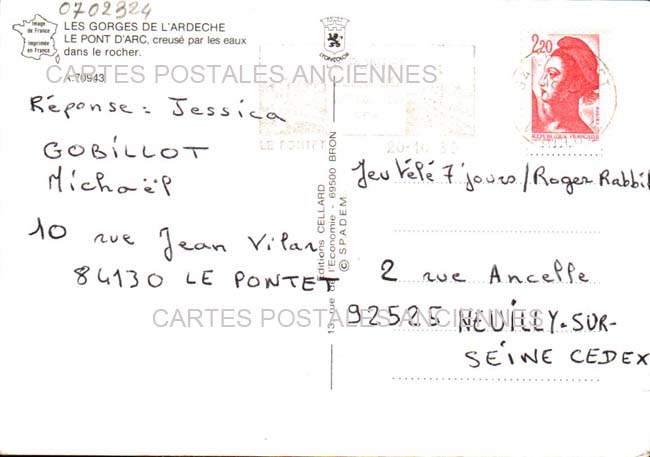 0702324
Image
de France
Imprimée
en France
LES GORGES DE L'ARDECHE
LE PONT D'ARC, creusé par les eaux
dans le rocher.
A.70943
CARTES POSTALES ANCIENNES
LYON-COLOR
LE PONTET
2,20
REPUBLIQUE FRANÇAISE
Réponse : Jessica
GOBILLOT
Michaël
10 rue Jean Vilar
84130 LE PONTET
Editions CELLARD
13, rue de l'Economie - 69500 BRON
© S.P.A.D.E.M.
Jeu Télé 7 jours / Roger Rabbit
2 rue Ancelle
92525 NEUILLY-SUR-
SEINE CEDEX
CARTES POSTALES ANCIENNES